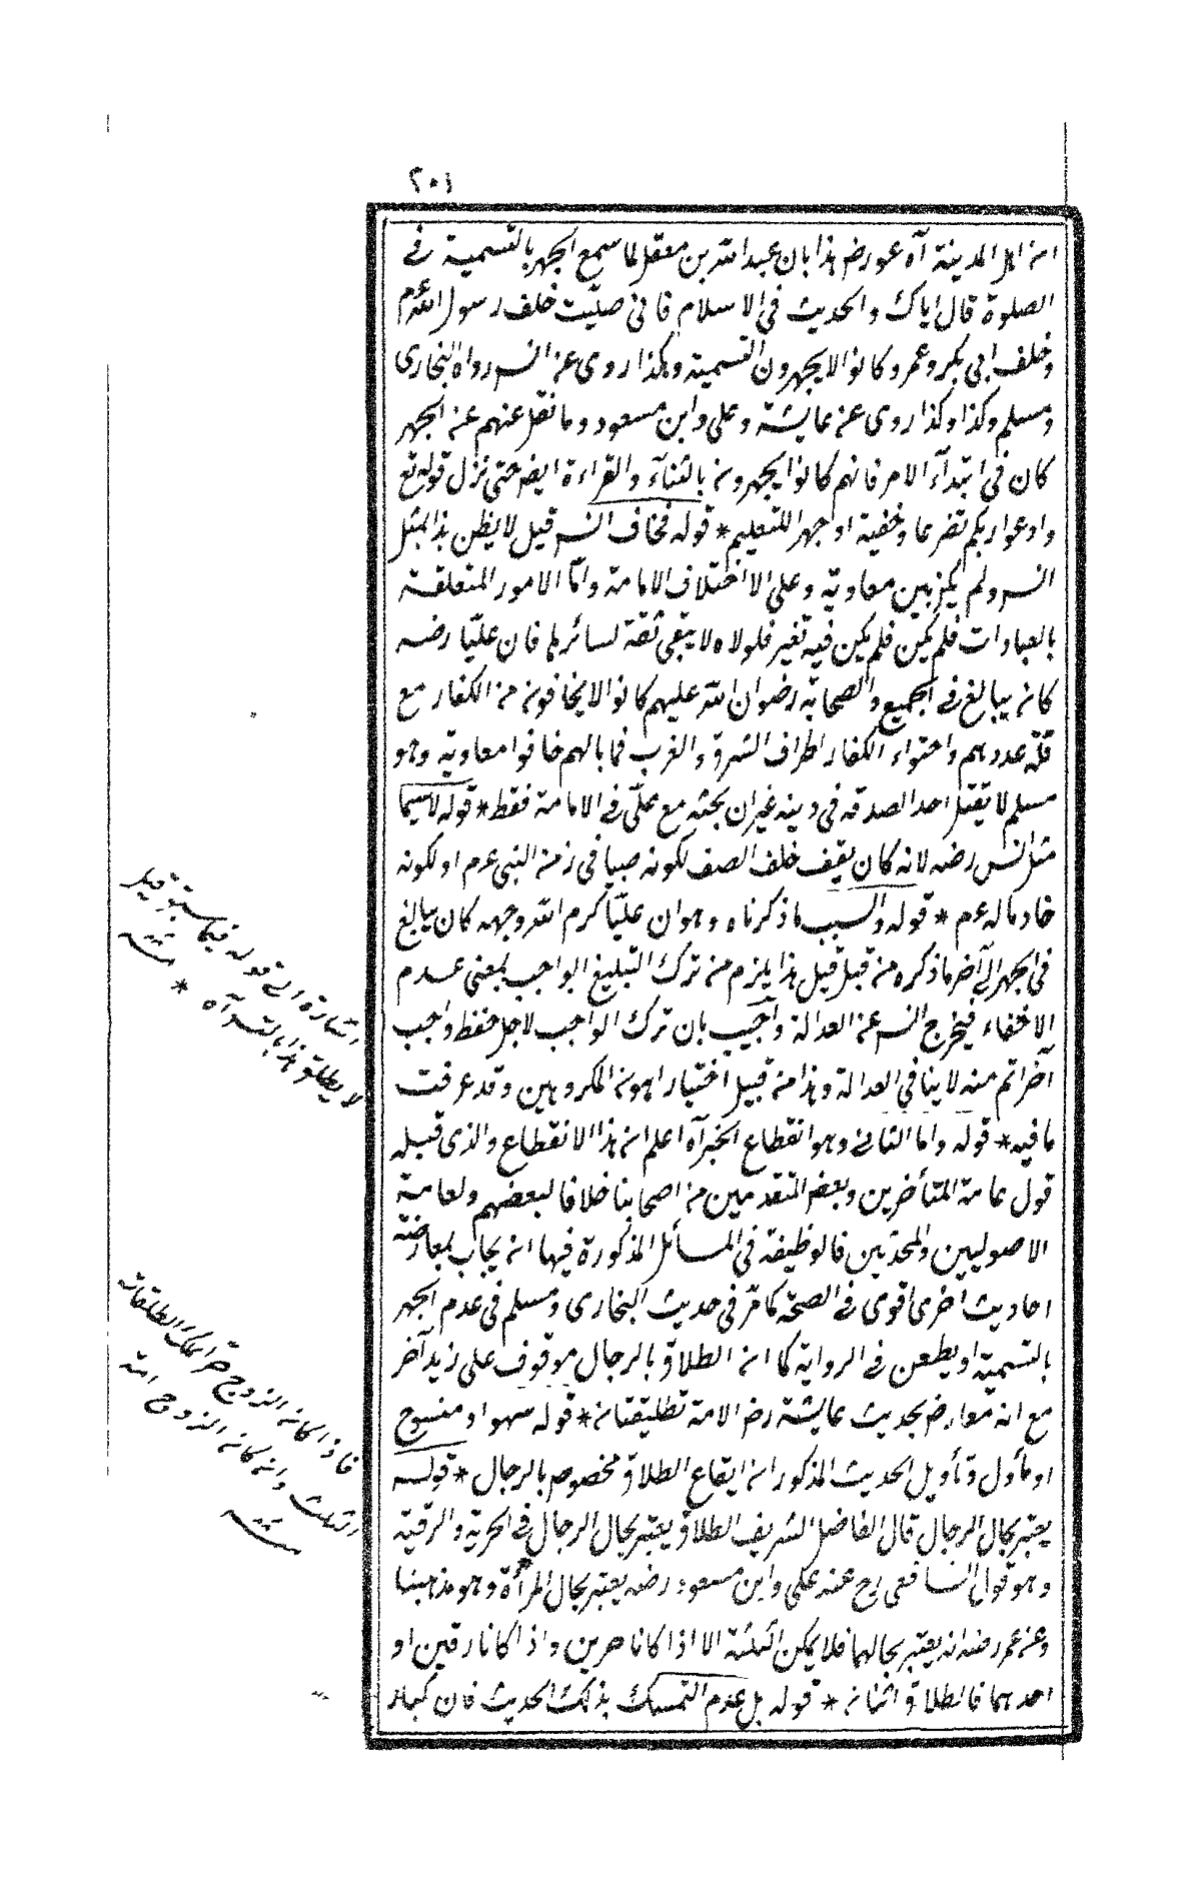 ٢٠١
ان اهل المدينة آه عورض هذا بان عبد الله بن مغفل لما سمع الجهر بالتسمية فى
الصلوة قال اياك والحدث فى الاسلام فانى صلّيت خلف رسول الله عم
وخلف ابى بكر وعمر وكانوا لا يجهرون التسمية وهكذا روى عن انس رواه البخارى
ومسلم وكذا وكذا روى عن عايشة وعلى وابن مسعود وما نقل عنهم عن الجهر
كان فى ابتدآء الامر فانهم كانوا يجهرون بالثنآء والقراءة ايضا حتى نزل قوله تع
وادعوا ربكم تضرعا وخفية او جهرا للتعليم * قوله فخاف انس قيل لا يظن بذا بمثل
انس ولم يكن بين معاوية وعلى الا اختلاف الامامة وامّا الامور المتعلقة
بالعبادات فلم يكن فلم يكن فيه تغير فلولاه لا يبقى ثقة لسائرها فان عليّا رضه
كان يبالغ فى الجميع والصحابة رضوان الله عليهم كانوا لا يخافون من الكفار مع
قلّة عددهم واحتواء الكفار اطراف الشرق والغرب فما بالهم خافوا معاوية وهو
مسلم لا يقتل احد الصدقه فى دينه غير ان بحثه مع علىّ فى الامامة فقط * قوله لاسيما
مثل انس رضه لانه كان يقف خلف الصف لكونه صبيا فى زمن النبى عم او لكونه
خادما له عم * قوله والسبب ما ذكرناه وهو ان عليّا كرم الله وجهه كان يبالغ
فى الجهر الى آخر ما ذكره من قبل قيل هذا يلزم من ترك التبليغ الواجب بمعنى عدم
الاخفاء فيخرج انس عن العدالة واجيب بان ترك الواجب لاجل حفظ واجب
آخر اتم منه لا ينافى العدالة وهذا من قبيل اختيار اهون المكروهين وقد عرفت
ما فيه * قوله واما الثانى وهو انقطاع الخبر آه اعلم ان هذا الانقطاع والذى قبله
قول عامة المتأخرين وبعض المتقدمين من اصحابنا خلافا لبعضهم ولعامة
الاصوليين والمحدثين فالوظيفة فى المسائل المذكورة فيها ان يجاب بمعارضة
احاديث اخرى اقوى فى الصحّة كما مرّ فى حديث البخارى ومسلم فى عدم الجهر
بالتسمية او يطعن فى الرواية كما ان الطلاق بالرجال موقوف على زيد آخر
مع انه معارض بحديث عايشة رض الامة تطليقتان * قوله سهو او منسوخ
او مأول وتأويل الحديث المذكور ان ايقاع الطلاق مخصوص بالرجال * قوله
يعتبر بحال الرجال قال الفاضل الشريف الطلاق يعتبر بحال الرجال فى الحرية والرقية
وهو قول الشافعى رح عنه على وابن مسعود رضه يعتبر بحال المرأة وهو مذهبنا
وعن عمر رضه انه يعتبر بحالهما فلا يمكن الثلثة الا اذا كانا حرين واذا كانا رقين او
احدهما فالطلاق اثنان * قوله بل عدم التمسك بذلك الحديث فان كبار
اشارة الى قوله فيما سبق قيل
لا يطلق هذا بانس آه *
منه
فاذا كان الزوج حرا يملك الطلقات
الثلث وان كان الزوج امة
منه